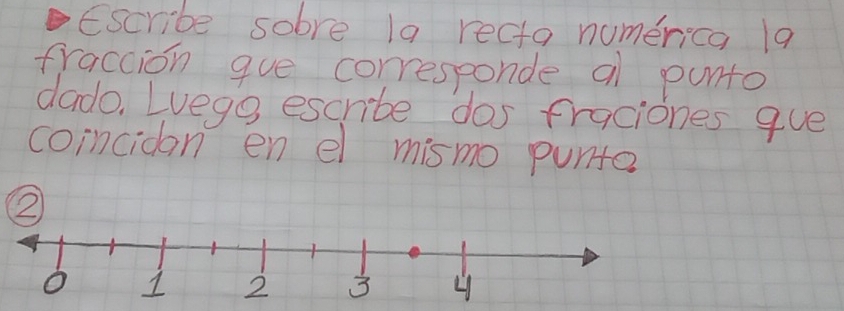 Escribe sobre la recta numérica la
fracción que corresponde al punto
dado. Luego, escribe dos fraciones que
coincidan en el mismo punto.
2
0 1 2 3 4